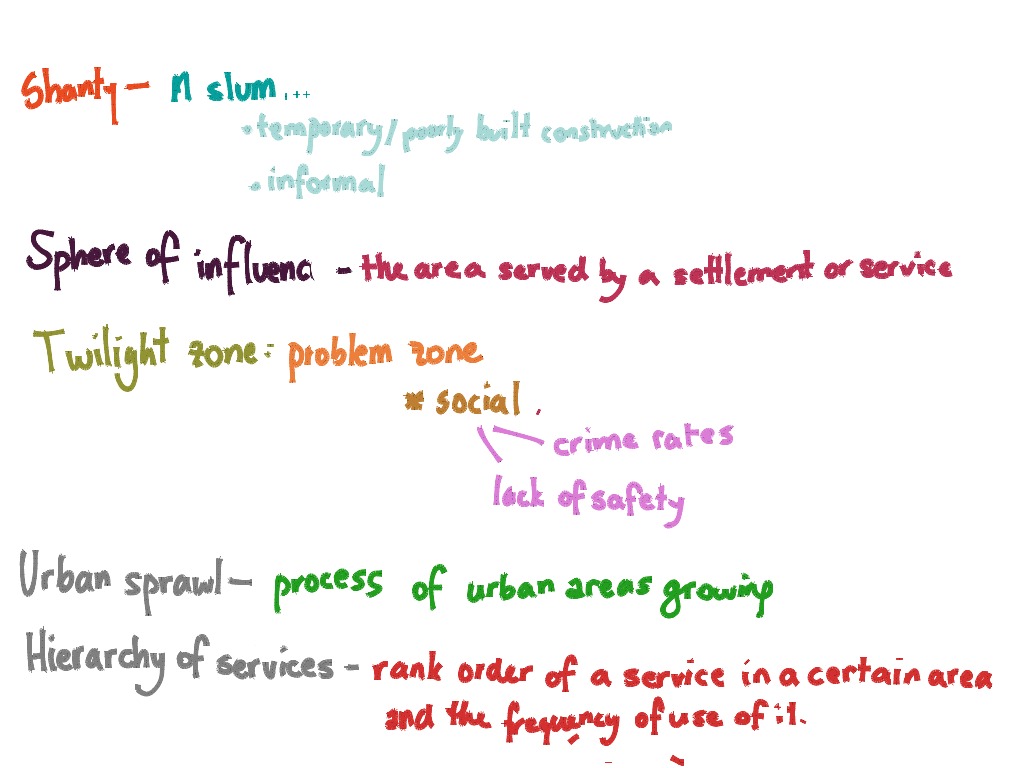 Shanty – A slum...
• temporary/poorly built construction
• informal
Sphere of influenc - the area served by a settlement or service
Twilight zone: problem zone
* social
crime rates
lack of safety
Urban sprawl – process of urban areas growing
Hierarchy of services – rank order of a service in a certain area
and the frequency of use of it.